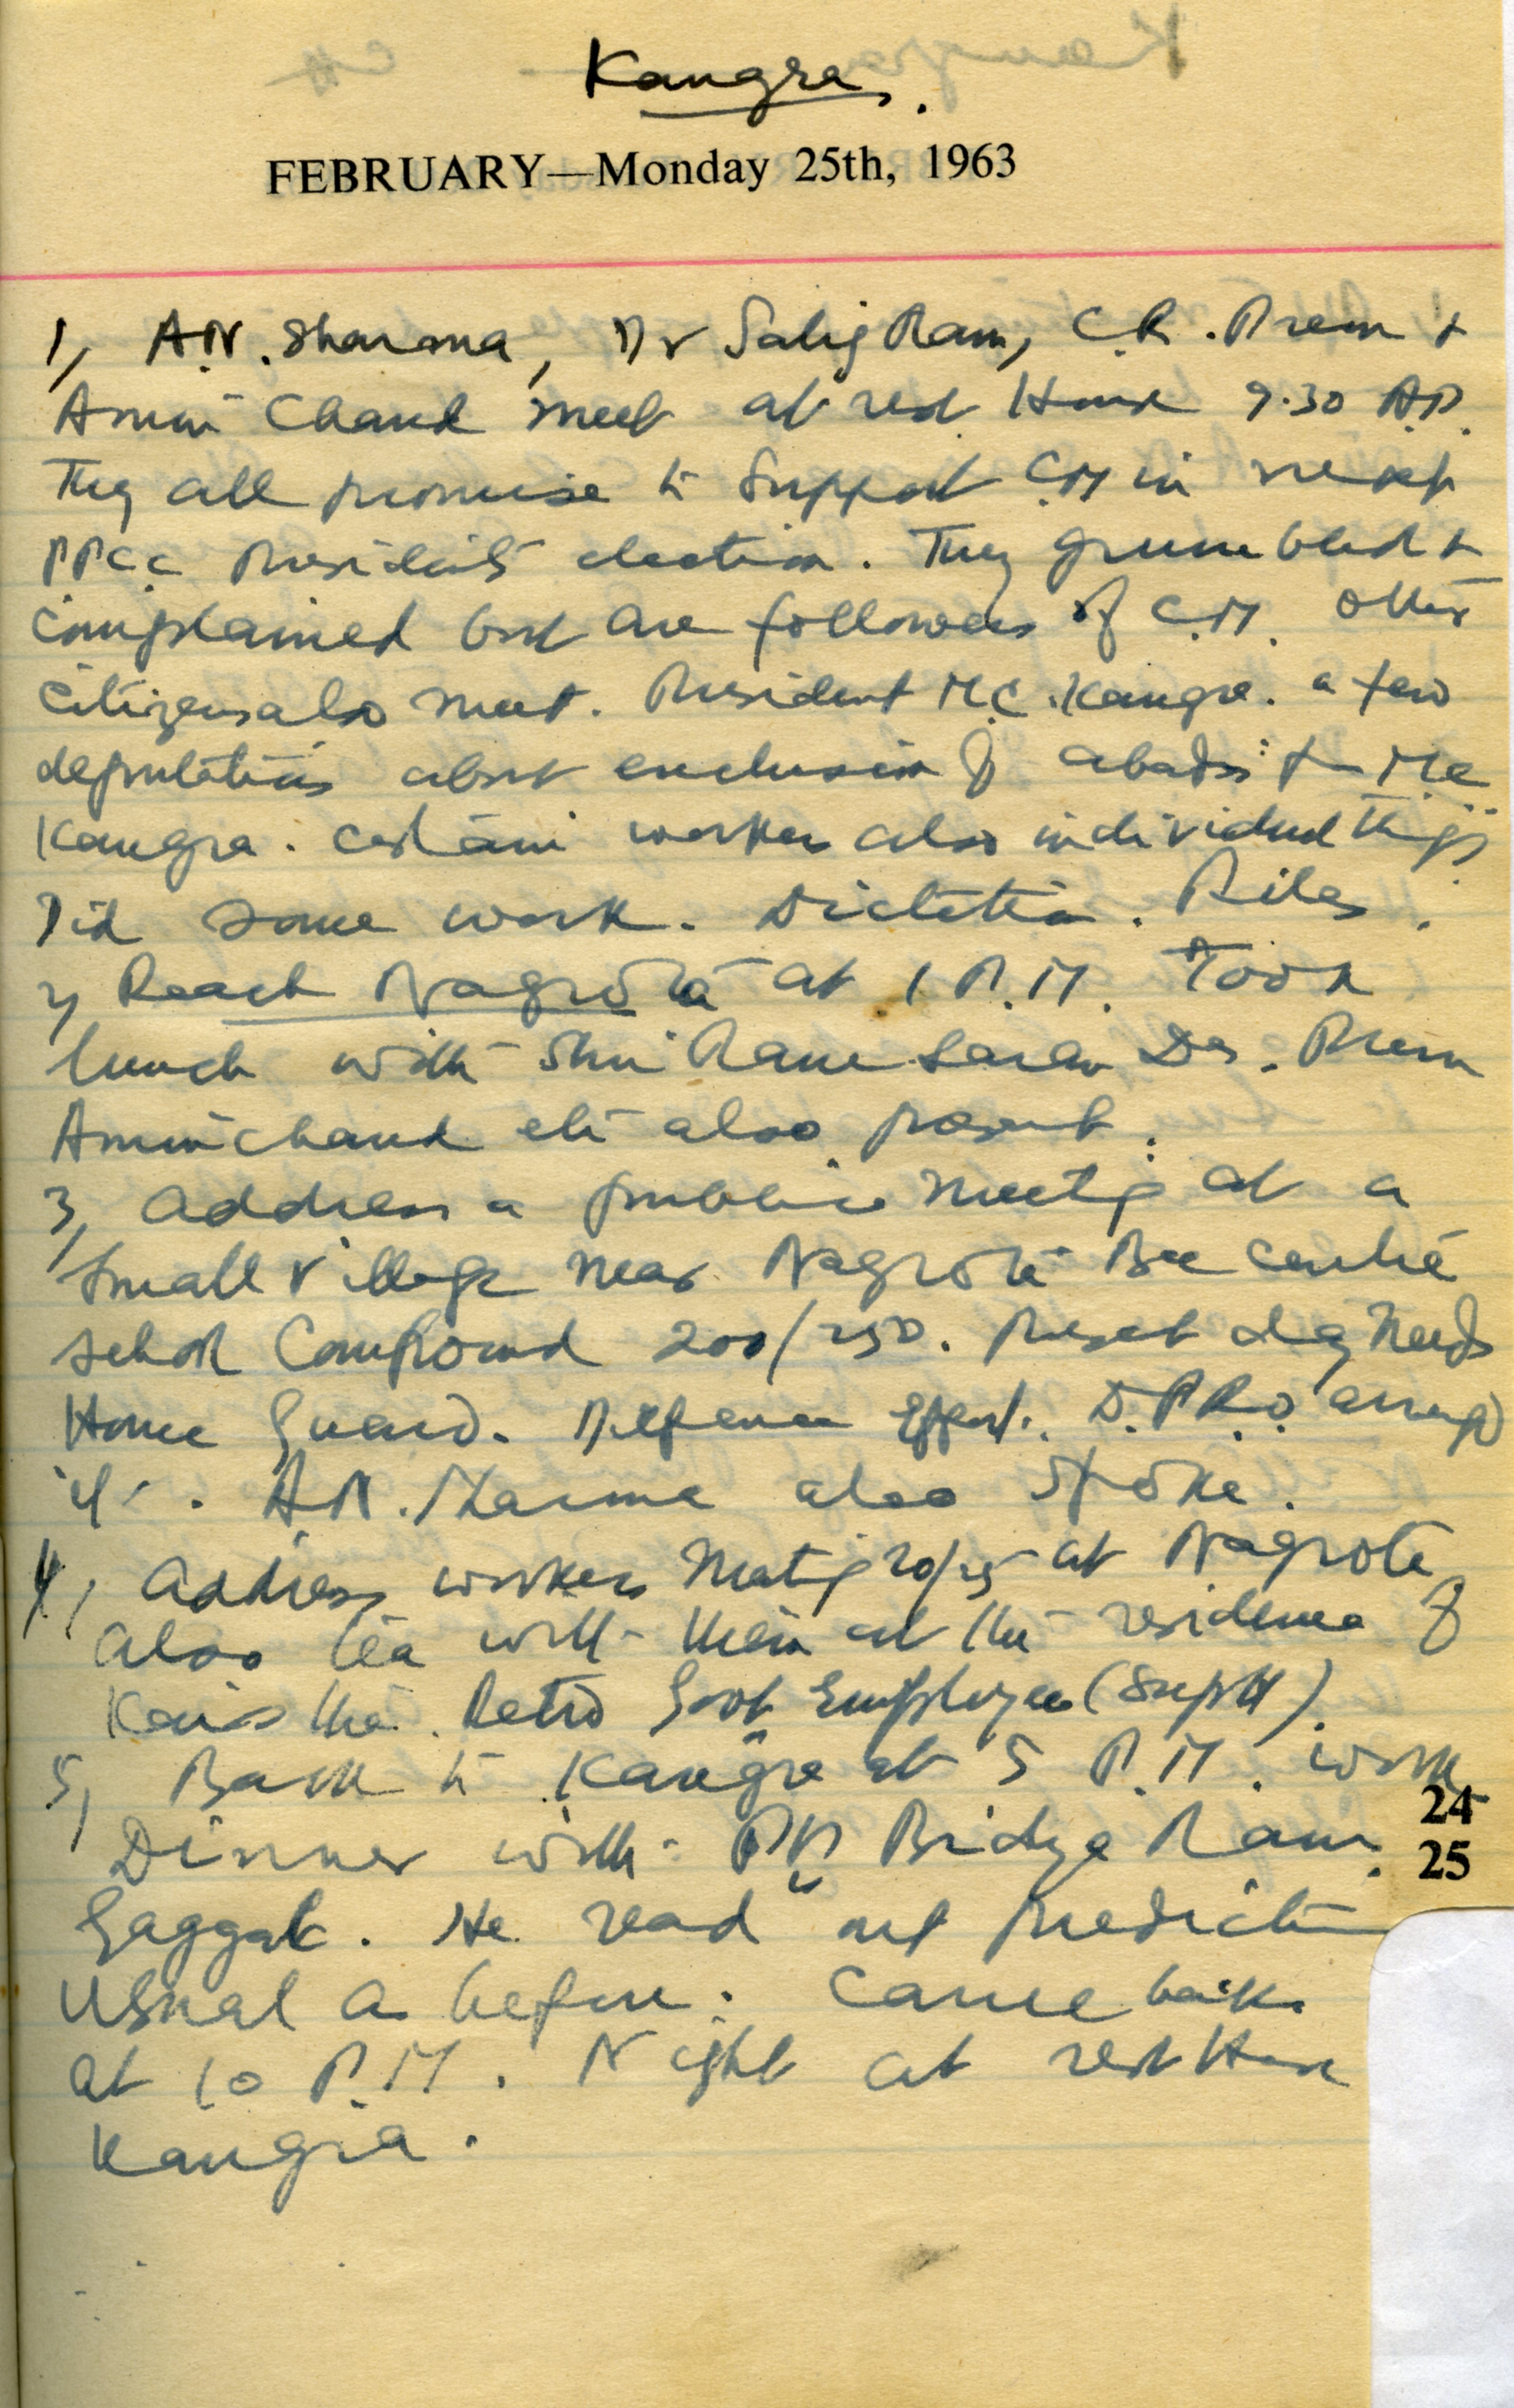 Kangra.
FEBRUARY—Monday 25th, 1963
1, A.N. Sharma, Dr Salig Ram, C.R. Prem +
Amin Chand meet at rest House 9.30 A.M.
They all promise to support C.M in next
PPCC Presidents election. They grumbled +
complained but are followers of C.M. other
citizens also meet. President M.C. Kangra. a few
deputations about exclusion of abadis from M.C
Kangra. certain workers also individual things
Did some work. Dictation. Files.
2, Reach Nagrota at 1 P.M. Took
lunch with Shri Ram Saran Das. Prem
Aminchand etc also present.
3, Address a public meeting at a
small village near Nagrota Bee centre
school compound 200/250. Present day needs
Home Guard. Defence Effort. D.P.R.O. arranged
it. A.N. Sharma also spoke.
4, Address workers meeting 20/25 at Nagrota
also tea with them at the residence of
Retd Govt Employee (Supdt).
5, Back to Kangra at 5 P.M. work
24
Dinner with Pt Bidya Ram
25
Gaggal. He read out prediction
usual as before. Came back
at 10 P.M. Night at rest House
Kangra.